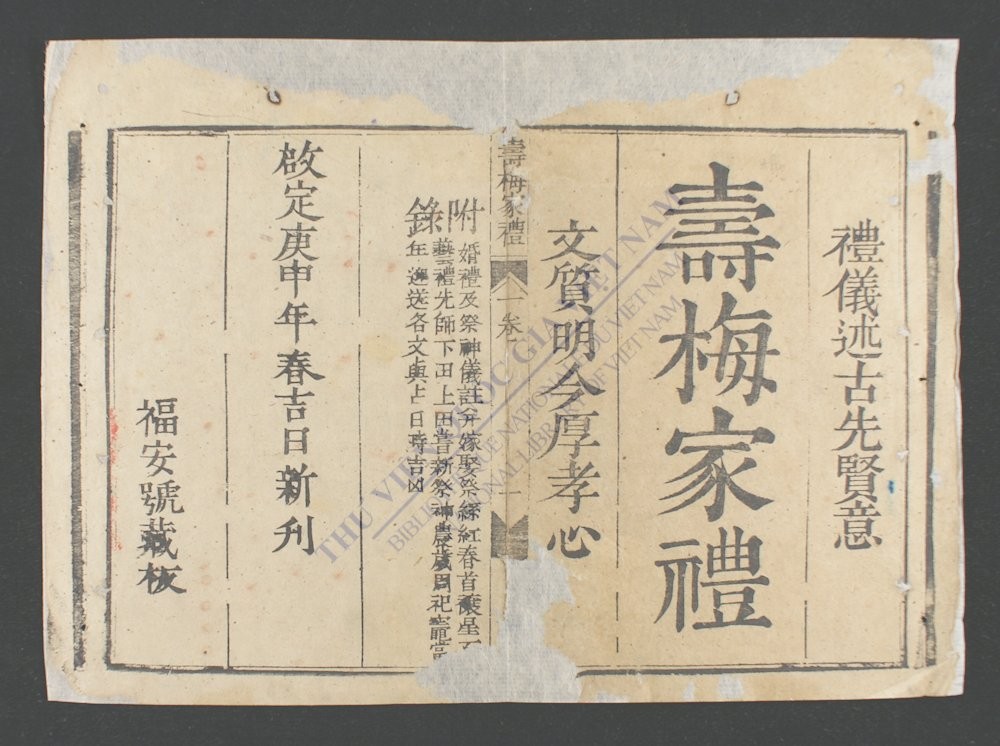 禮儀述古先賢意
壽梅家禮
文質明今厚孝心
壽梅家禮
一卷
一
附錄
婚禮及祭神儀註并嫁娶祭絲紅春首禳星
藝禮先師下田上田嘗新祭神農歲周祀竈當
年迎送各文與占日時吉凶
啟定庚申年春吉日新刊
福安號藏板
THƯ VIỆN QUỐC GIA VIỆT NAM
BIBLIOTHÈQUE NATIONALE DU VIETNAM
NATIONAL LIBRARY OF VIETNAM